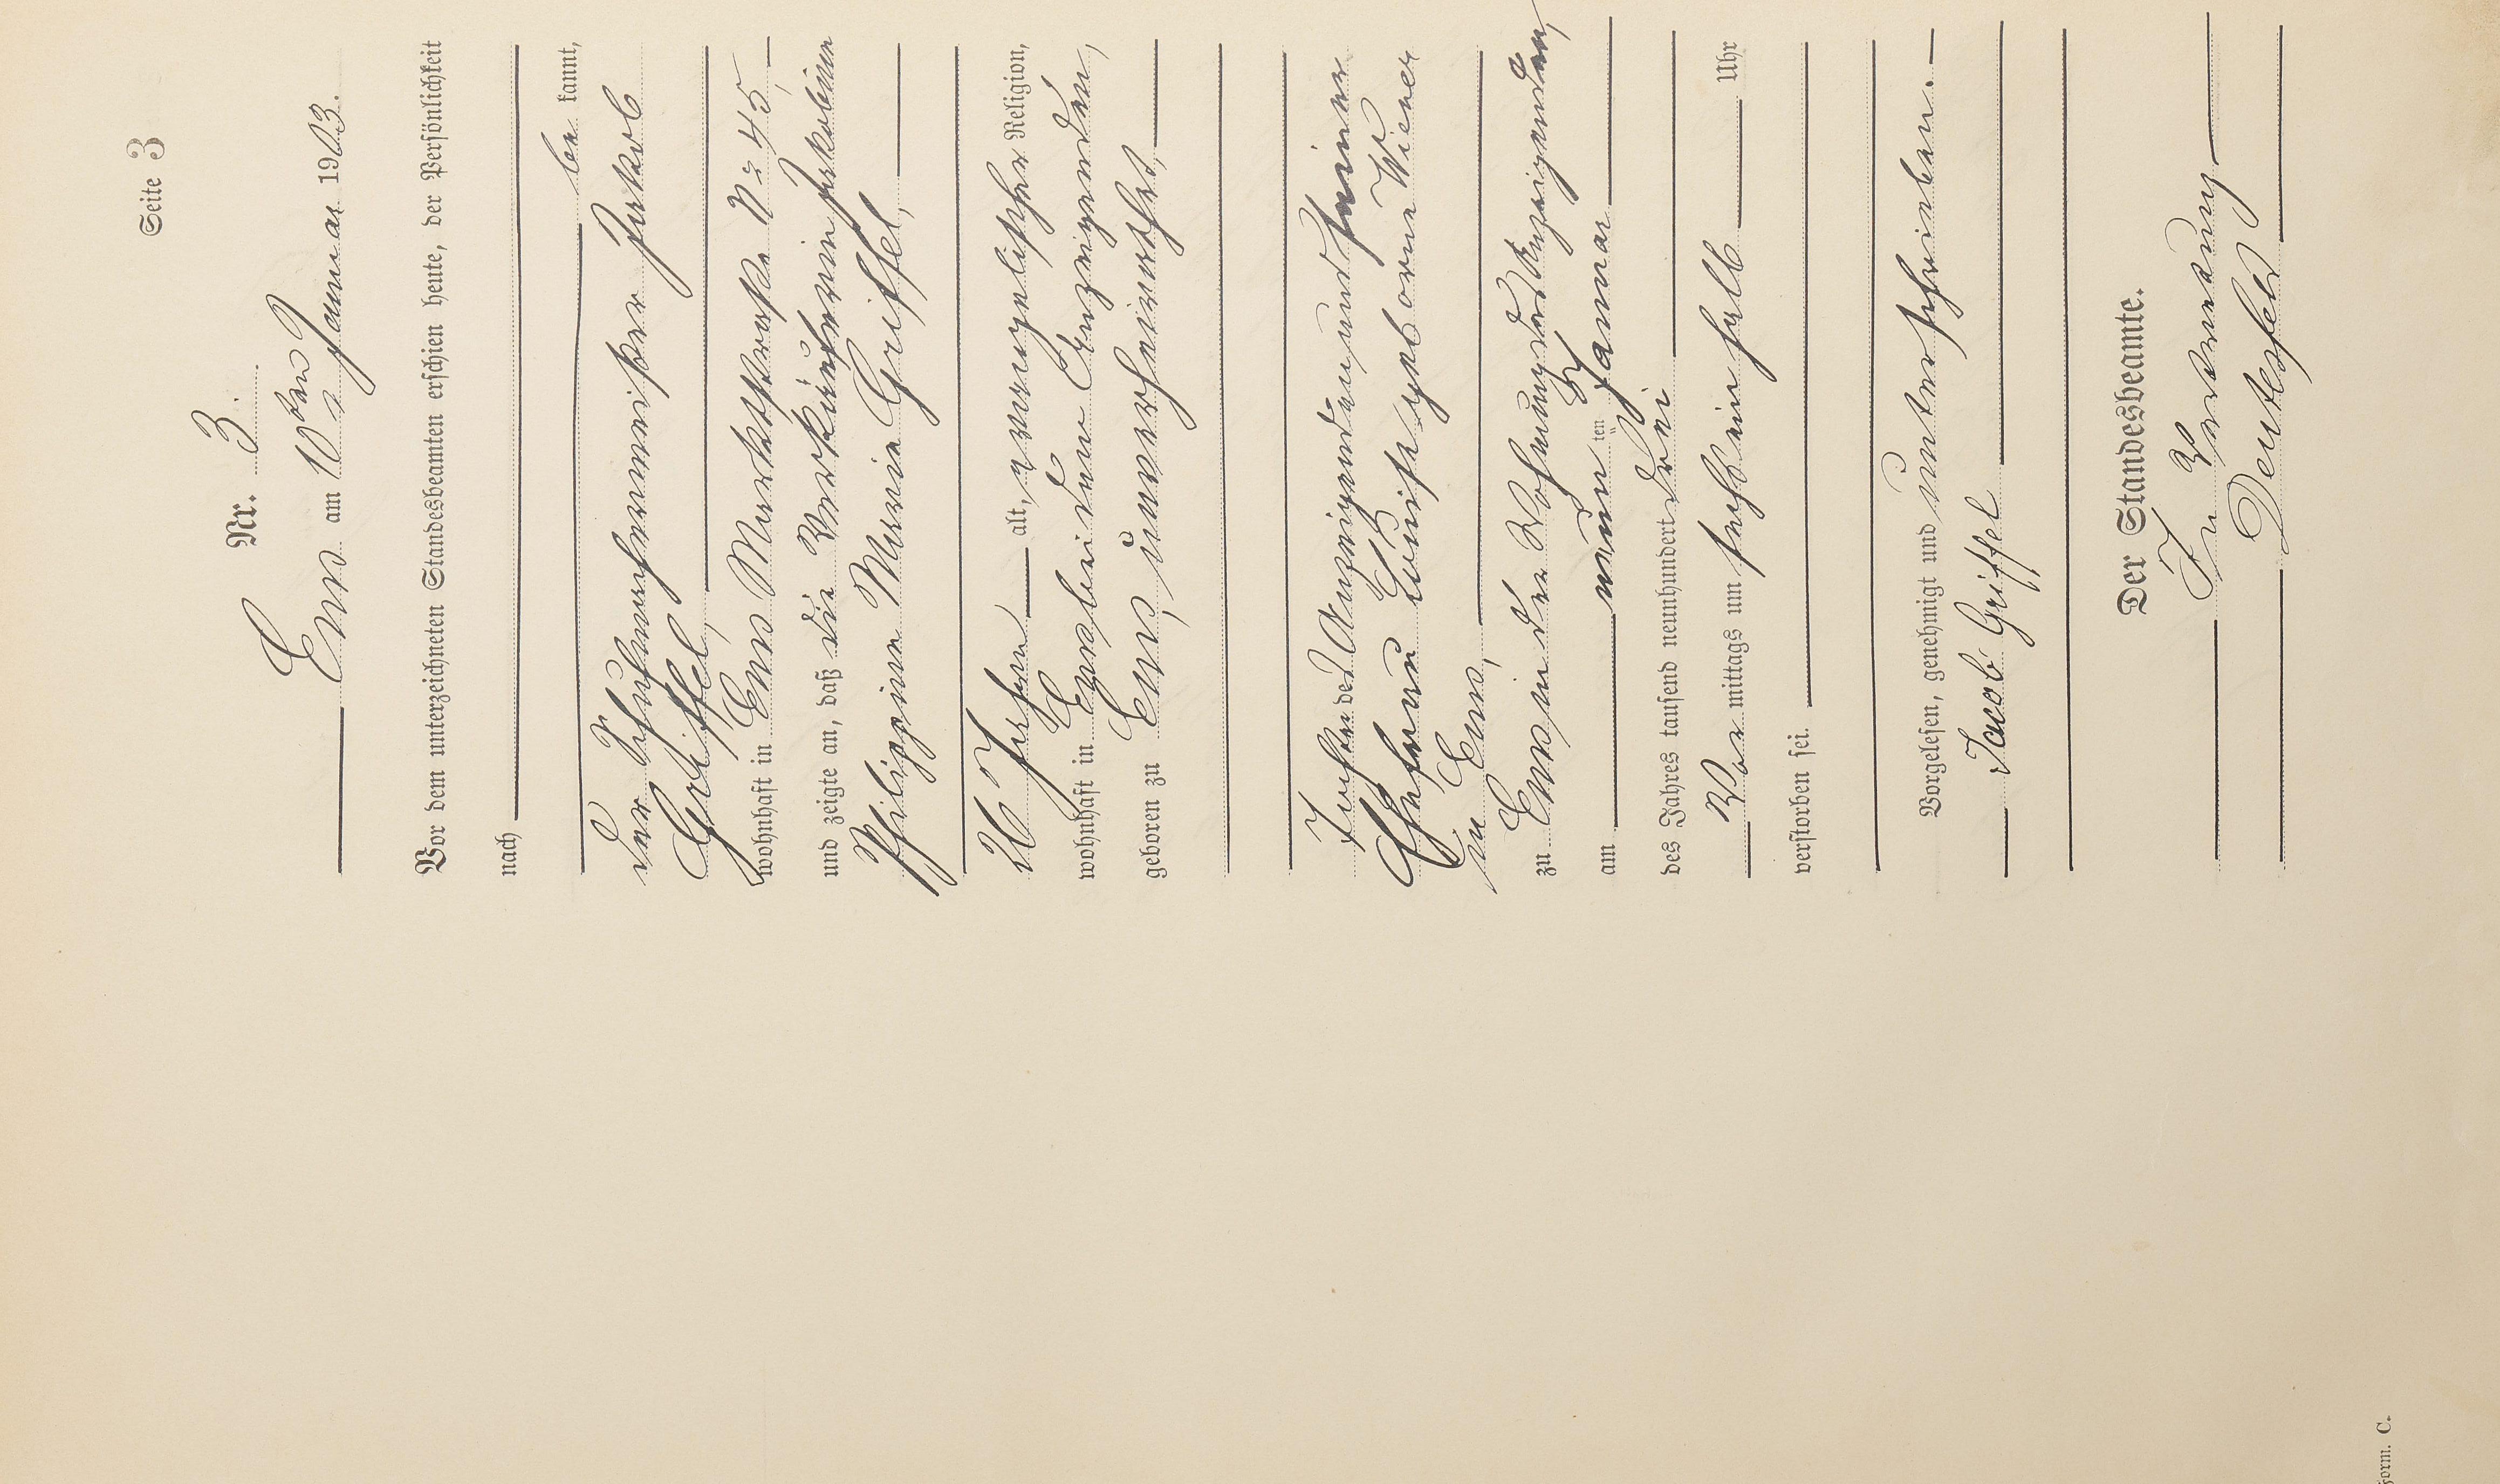 Seite 3
Nr. 3.
Ems am 10ten Januar 1903.
Vor dem unterzeichneten Standesbeamten erschien heute, der Persönlichkeit
nach
bekannt,
der Schuhmachermeister Jakob
Griffel,
wohnhaft in Ems Marktstraße No 45,
und zeigte an, daß die Verkäuferin Jakobine
Philippine Marie Griffel,
26 Jahre alt, evangelischer Religion,
wohnhaft in Ems bei dem Anzeigenden,
geboren zu Ems, unverheirathet,
Tochter des Anzeigenden und seiner
Ehefrau Louise geborne Wiener
in Ems,
zu Ems in der Wohnung des Anzeigenden,
am neunten Januar
des Jahres tausend neunhundert drei
Vormittags um sechseinhalb Uhr
verstorben sei.
Vorgelesen, genehmigt und unterschrieben.
Jacob Griffel
Der Standesbeamte.
In Vertretung
Form. C.